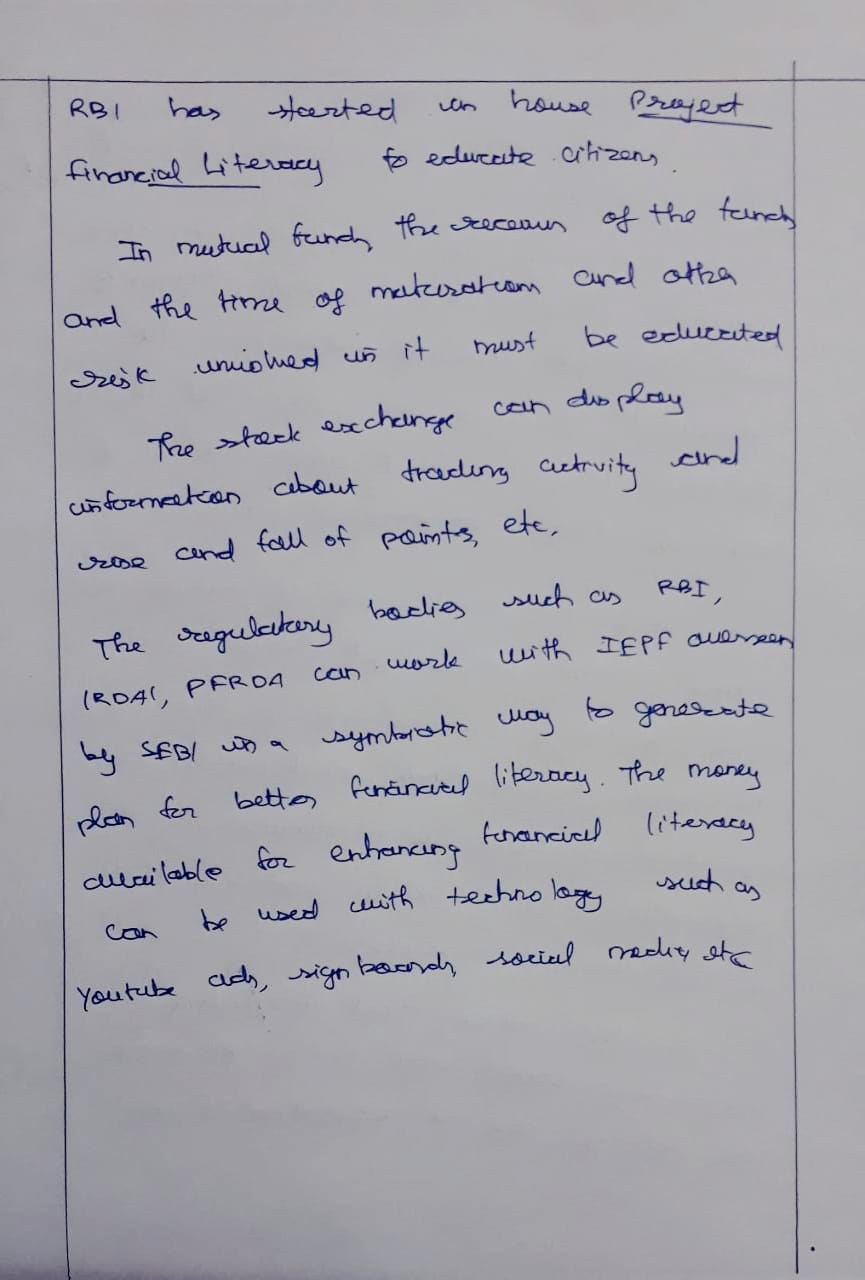 RBI has started in house Project
financial Literacy to educate citizens.
In mutual funds, the of the funds
and the time of maturation and other
risk involved in it must be educated
The stock exchange can display
information about trading activity and
rise and fall of points, etc.
The regulatory bodies such as RBI,
IRDAI, PFRDA can work with IEPF overseen
by SEBI in a symbiotic way to generate
plan for better financial literacy. The money
available for enhancing financial literacy
can be used with technology such as
Youtube ads, sign boards, social media etc